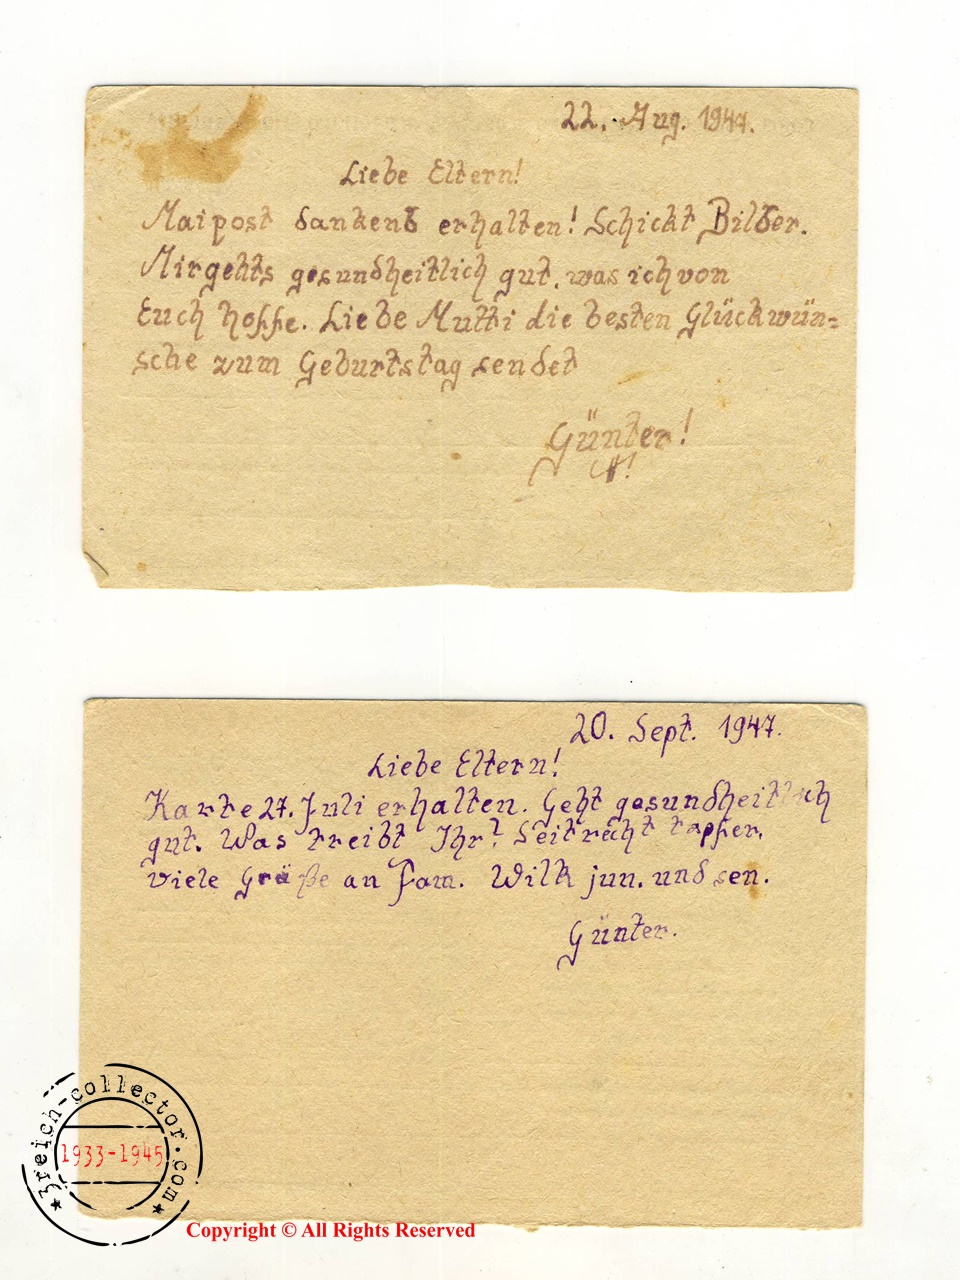 22. Aug. 1947.
Liebe Eltern!
Maipost dankend erhalten! Schickt Bilder.
Mir gehts gesundheitlich gut, was ich von
Euch hoffe. Liebe Mutti die besten Glückwün=
sche zum Geburtstag sendet
Günter!
20. Sept. 1947.
Liebe Eltern!
Karte 27. Juli erhalten. Geht gesundheitlich
gut. Was treibt Ihr? Seit recht tapfer.
Viele Grüße an Fam. Wilk jun. und sen.
Günter.
3reich-collector.com
1933-1945
Copyright © All Rights Reserved